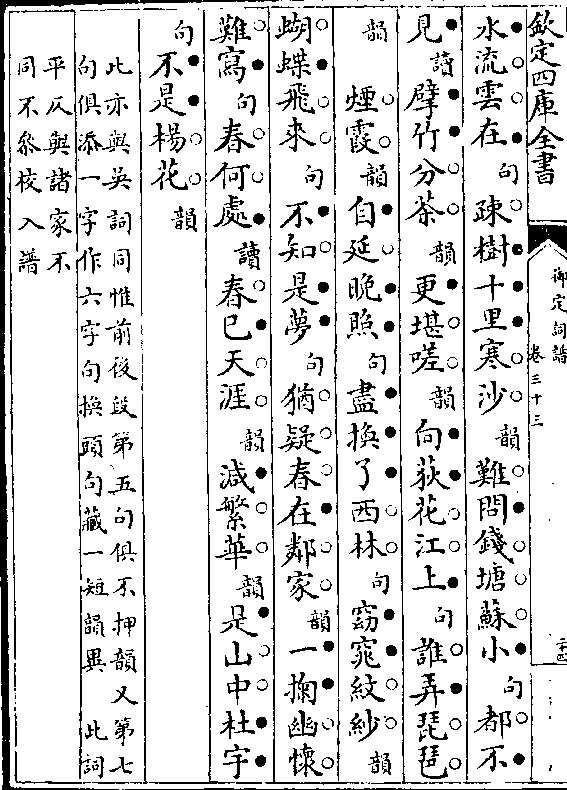 欽定四庫全書
御定詞譜
卷三十三
二十四
水流雲在句疎樹十里寒沙韻難問錢塘蘇小句都不
見讀擘竹分茶韻更堪嗟韻向荻花江上句誰弄琵琶
韻煙霞韻自延晚照句盡換了西林句窈窕紋紗韻
蝴蝶飛來句不知是夢句猶疑春在鄰家韻一掬幽懷
難寫句春何處讀春已天涯韻減繁華韻是山中杜宇
句不是楊花韻
此亦與吳詞同惟前後段第五句俱不押韻又第七
句俱添一字作六字句換頭句藏一短韻異　此詞
平仄與諸家不
同不參校入譜